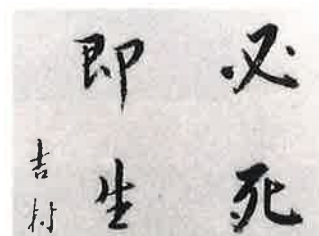 必死
即生
吉村